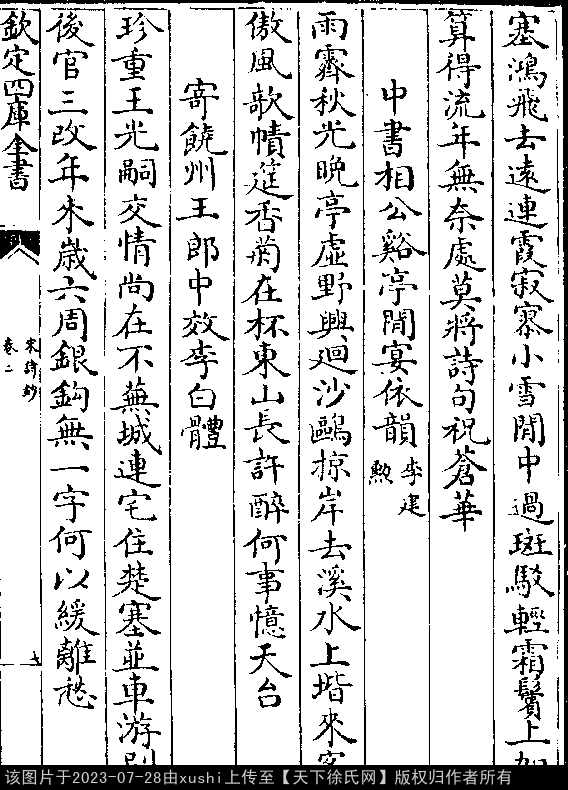 塞鴻飛去遠連霞寂寥小雪閒中過斑駁輕霜鬢上加
算得流年無奈處莫將詩句祝蒼華
中書相公谿亭閒宴依韻李建勲
雨霽秋光晚亭虛野興廻沙鷗掠岸去溪水上堦來客
傲風欹幘筵香菊在杯東山長許醉何事憶天台
寄饒州王郎中效李白體
珍重王光嗣交情尚在不蕪城連宅住楚塞並車游別
後官三改年來歲六周銀鈎無一字何以緩離愁
欽定四庫全書
宋詩鈔
卷二
该图片于2023-07-28由xushi上传至【天下徐氏网】版权归作者所有